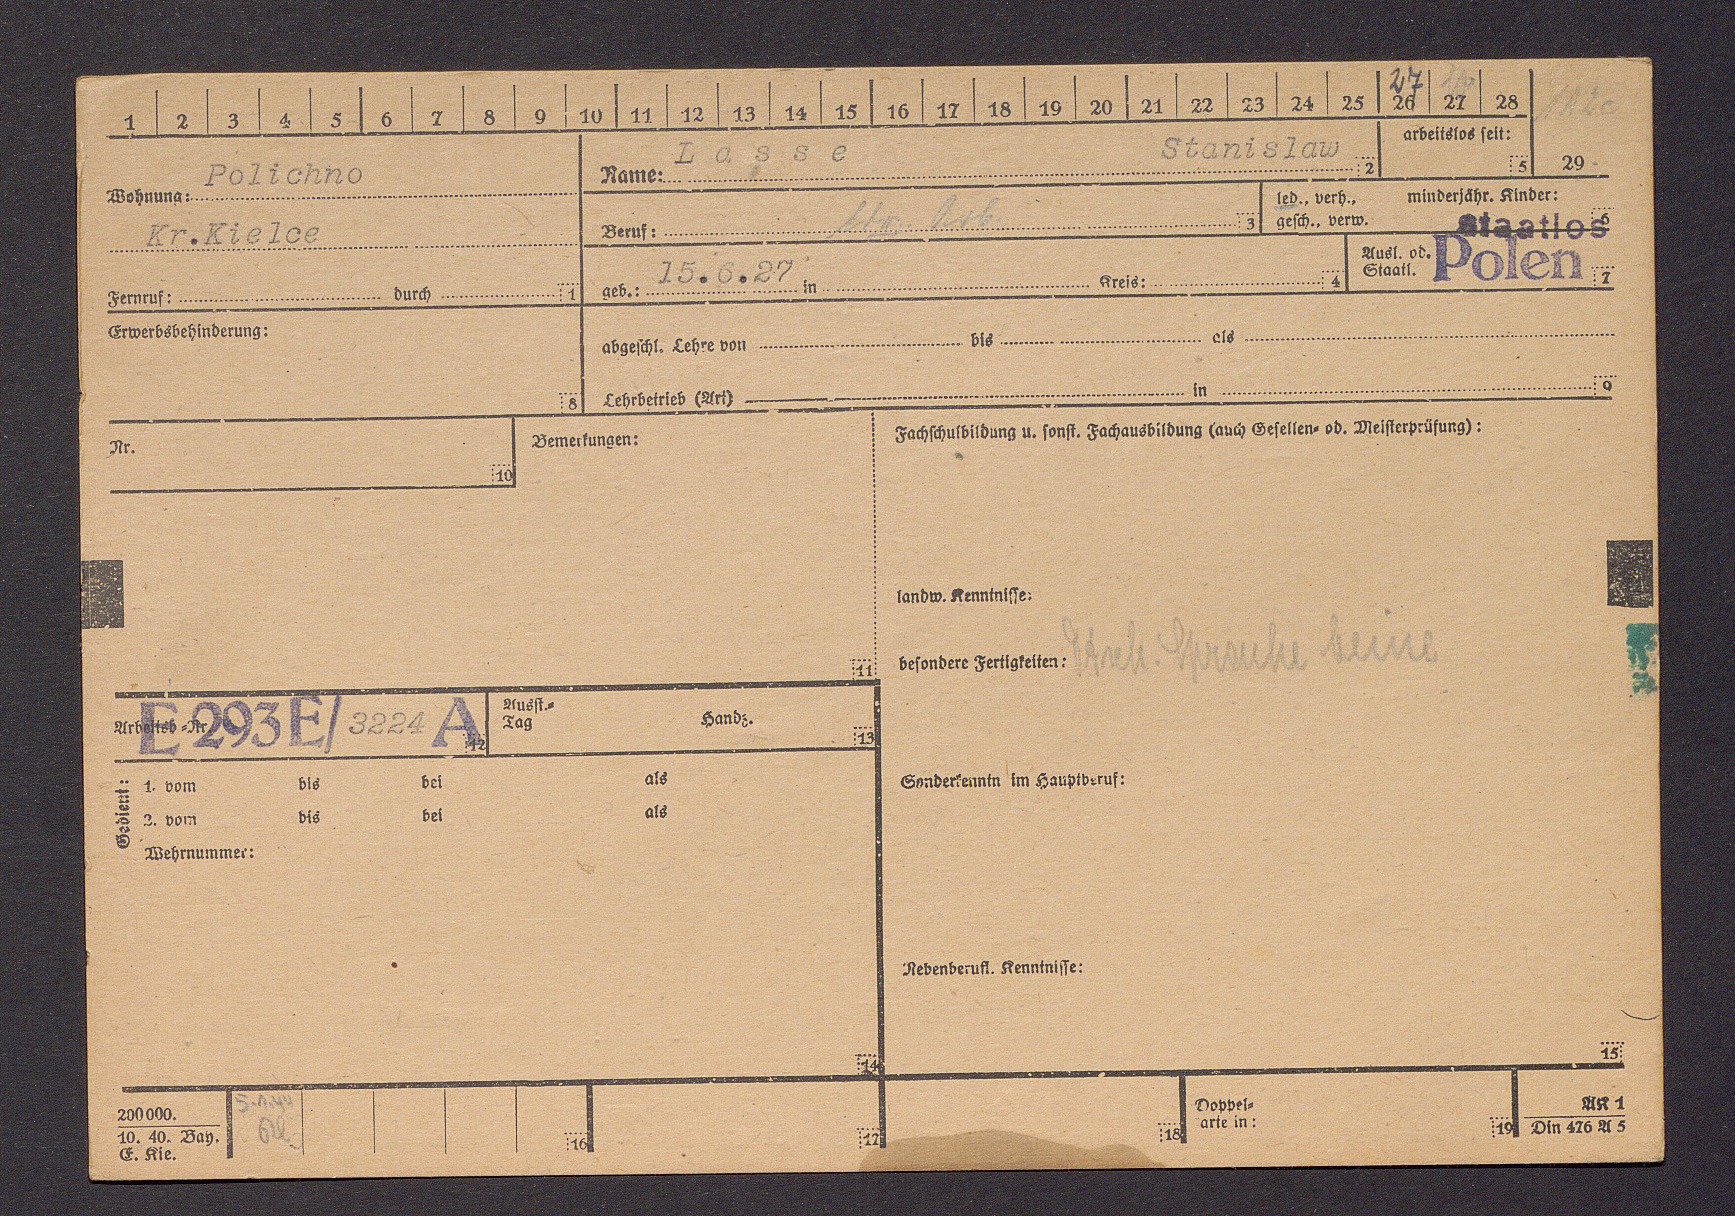 27
1 2 3 4 5 6 7 8 9 10 11 12 13 14 15 16 17 18 19 20 21 22 23 24 25 26 27 28
Wohnung: Polichno
Kr.Kielce
Fernruf: durch 1
Name: Lasse Stanislaw 2
arbeitslos seit: 5
29
Beruf: Arb. 3
led., verh., gesch., verw.
minderjähr. Kinder: 6
geb.: 15.6.27 in Kreis: 4
Ausl. od. Staatl. staatlos Polen 7
Erwerbsbehinderung: 8
abgeschl. Lehre von bis als
Lehrbetrieb (Art) in 9
Nr. 10
Bemerkungen: 11
Fachschulbildung u. sonst. Fachausbildung (auch Gesellen- od. Meisterprüfung):
landw. Kenntnisse:
besondere Fertigkeiten: Sprache keine
Arbeitsb-Nr. E 293E/ 3224 A 12
Ausst.-Tag Handz. 13
Gedient:
1. vom bis bei als
2. vom bis bei als
Wehrnummer:
14
Sonderkenntn im Hauptberuf:
Nebenberufl. Kenntnisse:
15
200000.
10. 40. Bay.
E. Kie.
16
17
18
Doppel-
arte in: 19
AK 1
Din 476 A 5